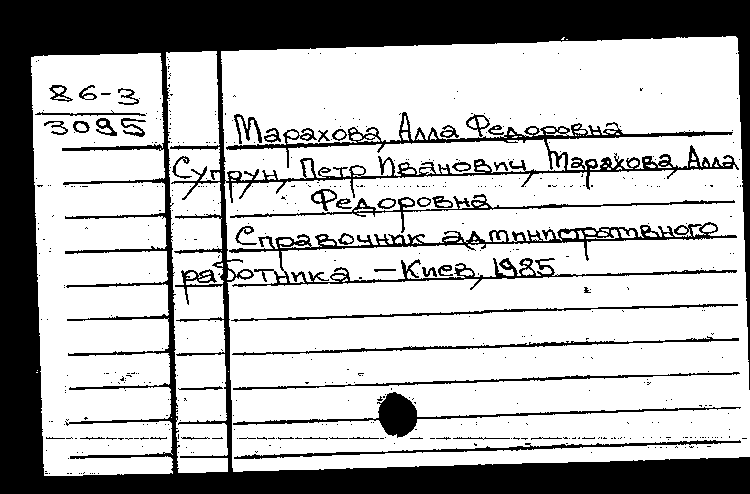 86-3
3095
Марахова, Алла Федоровна
Супрун, Петр Иванович, Марахова, Алла
Федоровна.
Справочник административного
работника. – Киев, 1985